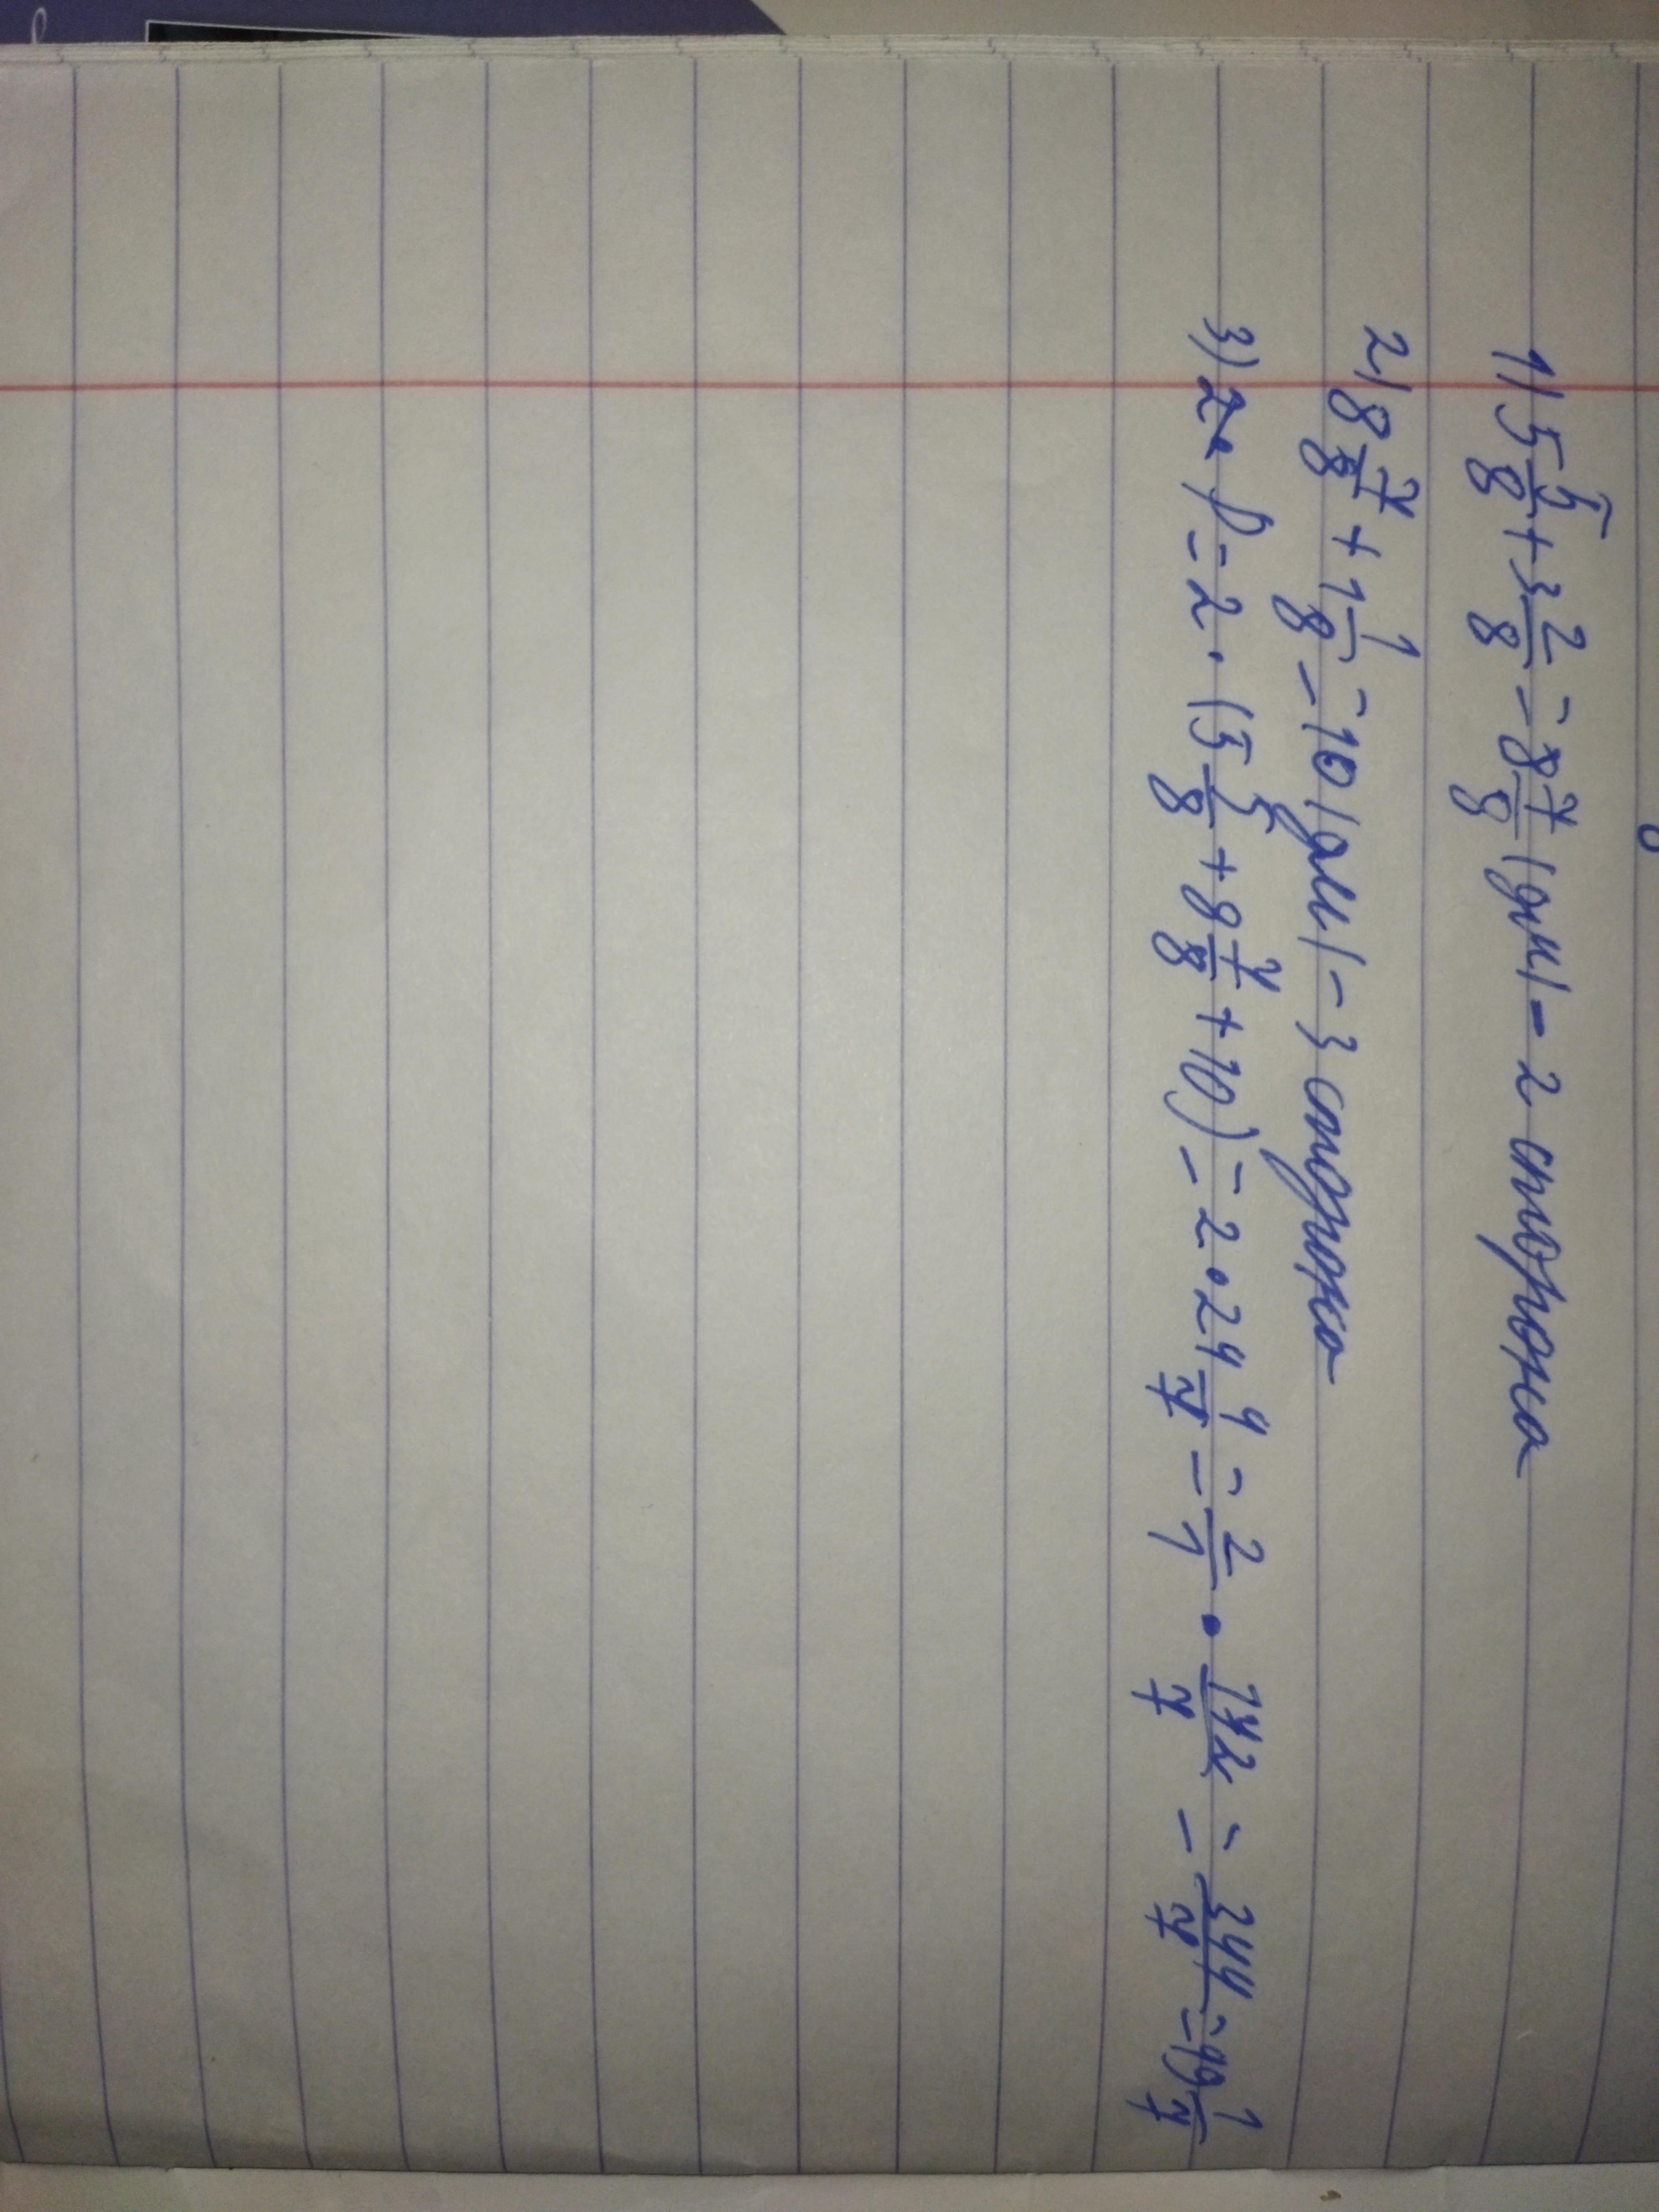 1) 5 5/8 + 3 2/8 = 8 7/8 (дм) - 2 сторона
2) 8 7/8 + 1 1/8 = 10 (дм) - 3 сторона
3) 2 • P = 2 • (5 5/8 + 8 7/8 + 10) = 2 • 24 4/7 = 2/1 • 172/7 = 344/7 = 49 1/7